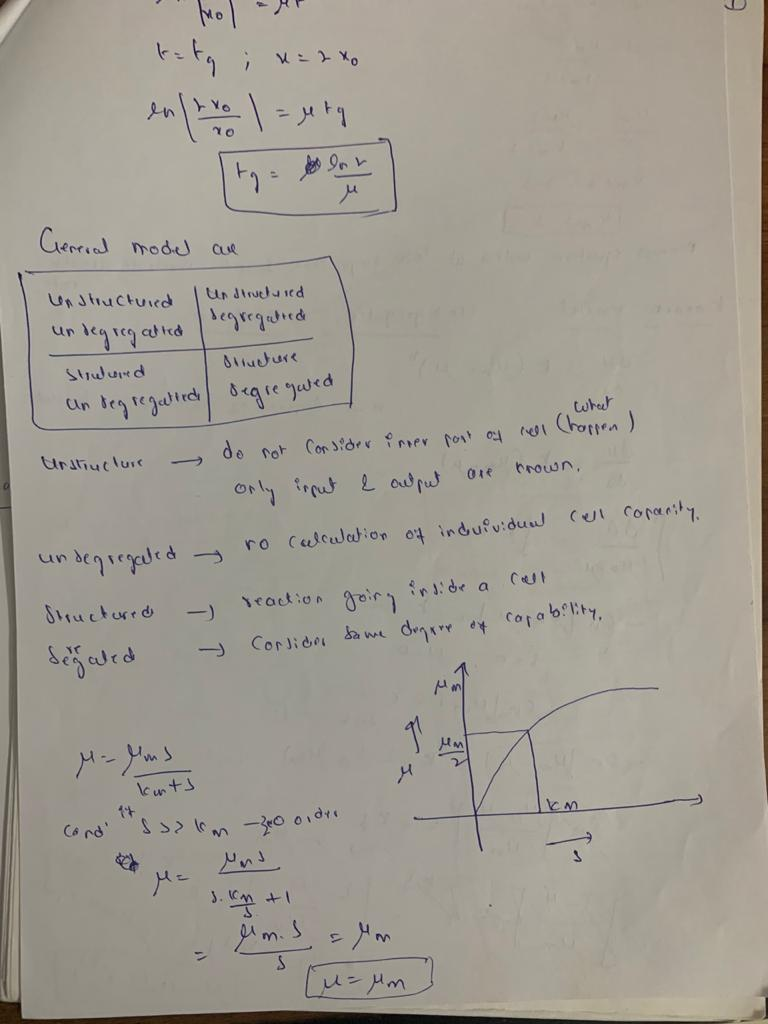 |x0| = μt
t = tg ; x = 2 x0
ln |2x0/x0| = μ tg
tg = ln 2/μ
General model are
Unstructured | Unstructured
undegregatted | degregatted
Strutured | Structure
Undegregatted | degregated
Unstructure → do not consider inner part of cell (what happen)
only input & output are known.
undegregated → no calculation of individual cell capacity.
Structured → reaction going inside a cell
Segreated → consider same degree of capability.
μm
μ
μm/2
km
→ s
μ = μm s/km+s
cond' if s >> km → zero order
μ = μm s/s.km/s + 1
= μm.s/s = μm
μ = μm